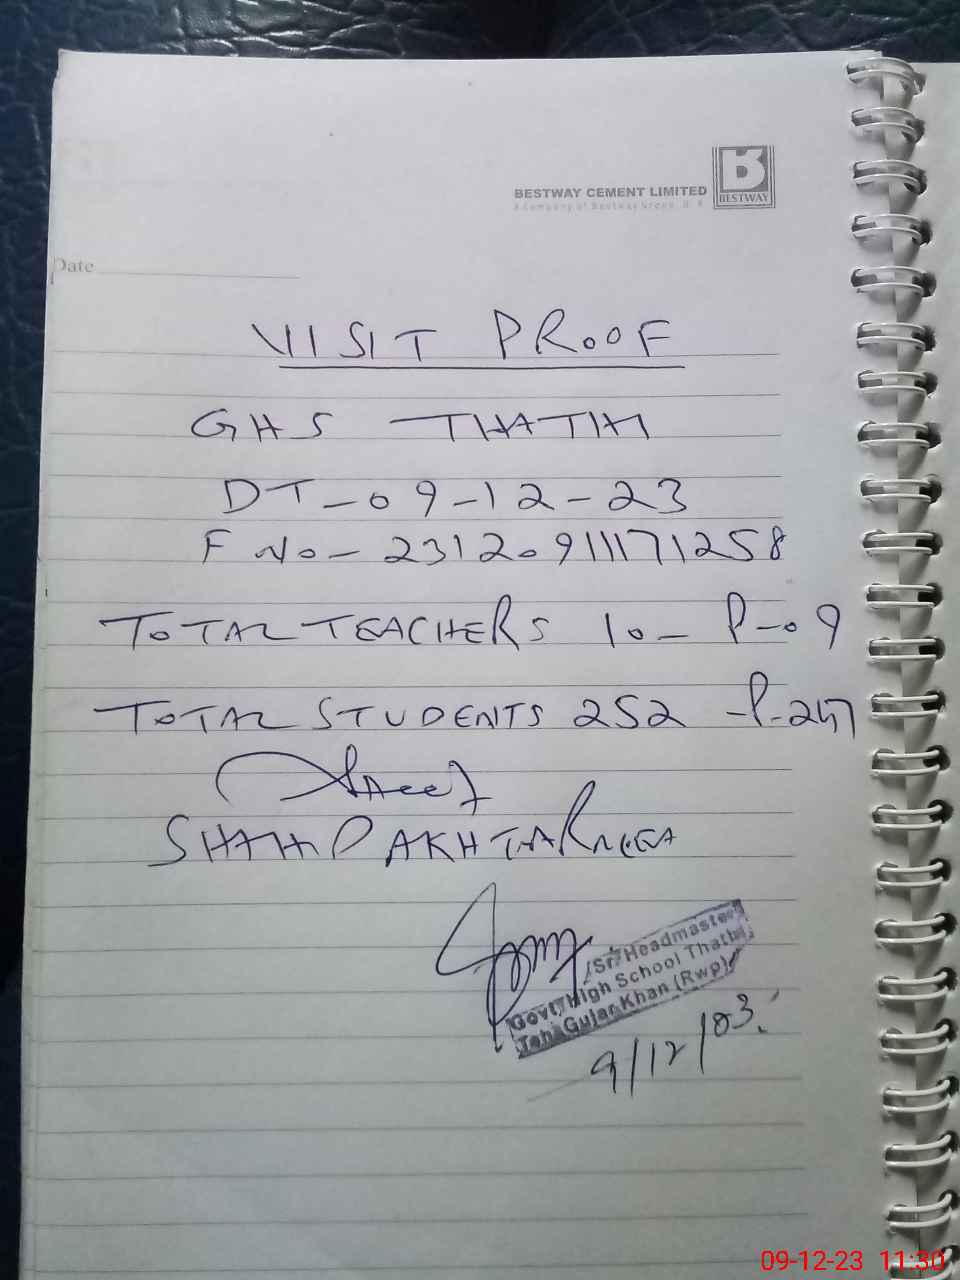 BESTWAY CEMENT LIMITED
A Company of Bestway Group, U. K
BESTWAY
Date
VISIT PROOF
GHS THATHI
DT-09-12-23
F No- 23120911171258
TOTAL TEACHERS 10- P-09
TOTAL STUDENTS 252 -P-247
SHAHID AKHTAR
Sr. Headmaster
Govt, High School Thathi
Teh: Gujar Khan (Rwp)
9/12/
09-12-23 11:30